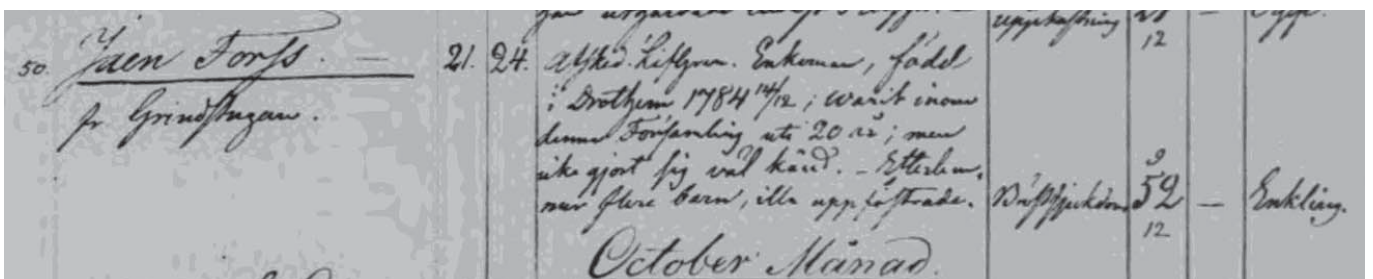 uppkastning 12
50. Jaen Forss. — 21. 24. Afsked. Lifgren. Enkeman, född
i Drothem 1784 14/12; warit inom
pr Grindstugan.
denna Församling uti 20 år; men
icke gjort sig väl känd. – Efterlem-
nar flere barn, illa uppfostrade. Bröstsjukdom 52 9/12 — Enkling.
October Månad.